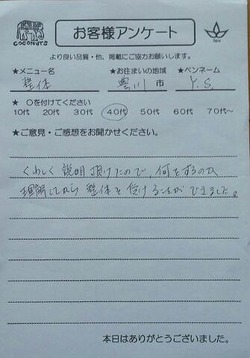 COCONUTS
お客様アンケート
より良い品質・他、掲載にご協力お願いします。
★メニュー名 ★お住まいの地域 ★ペンネーム
整体 豊川 市 Y.S
★ ○を付けてください
10代 20代 30代 40代 50代 60代 70代~
★ご意見・ご感想をお聞かせください。
くわしく説明頂けたので、何をするのか
理解してから整体を受ける事ができました。
本日はありがとうございました。